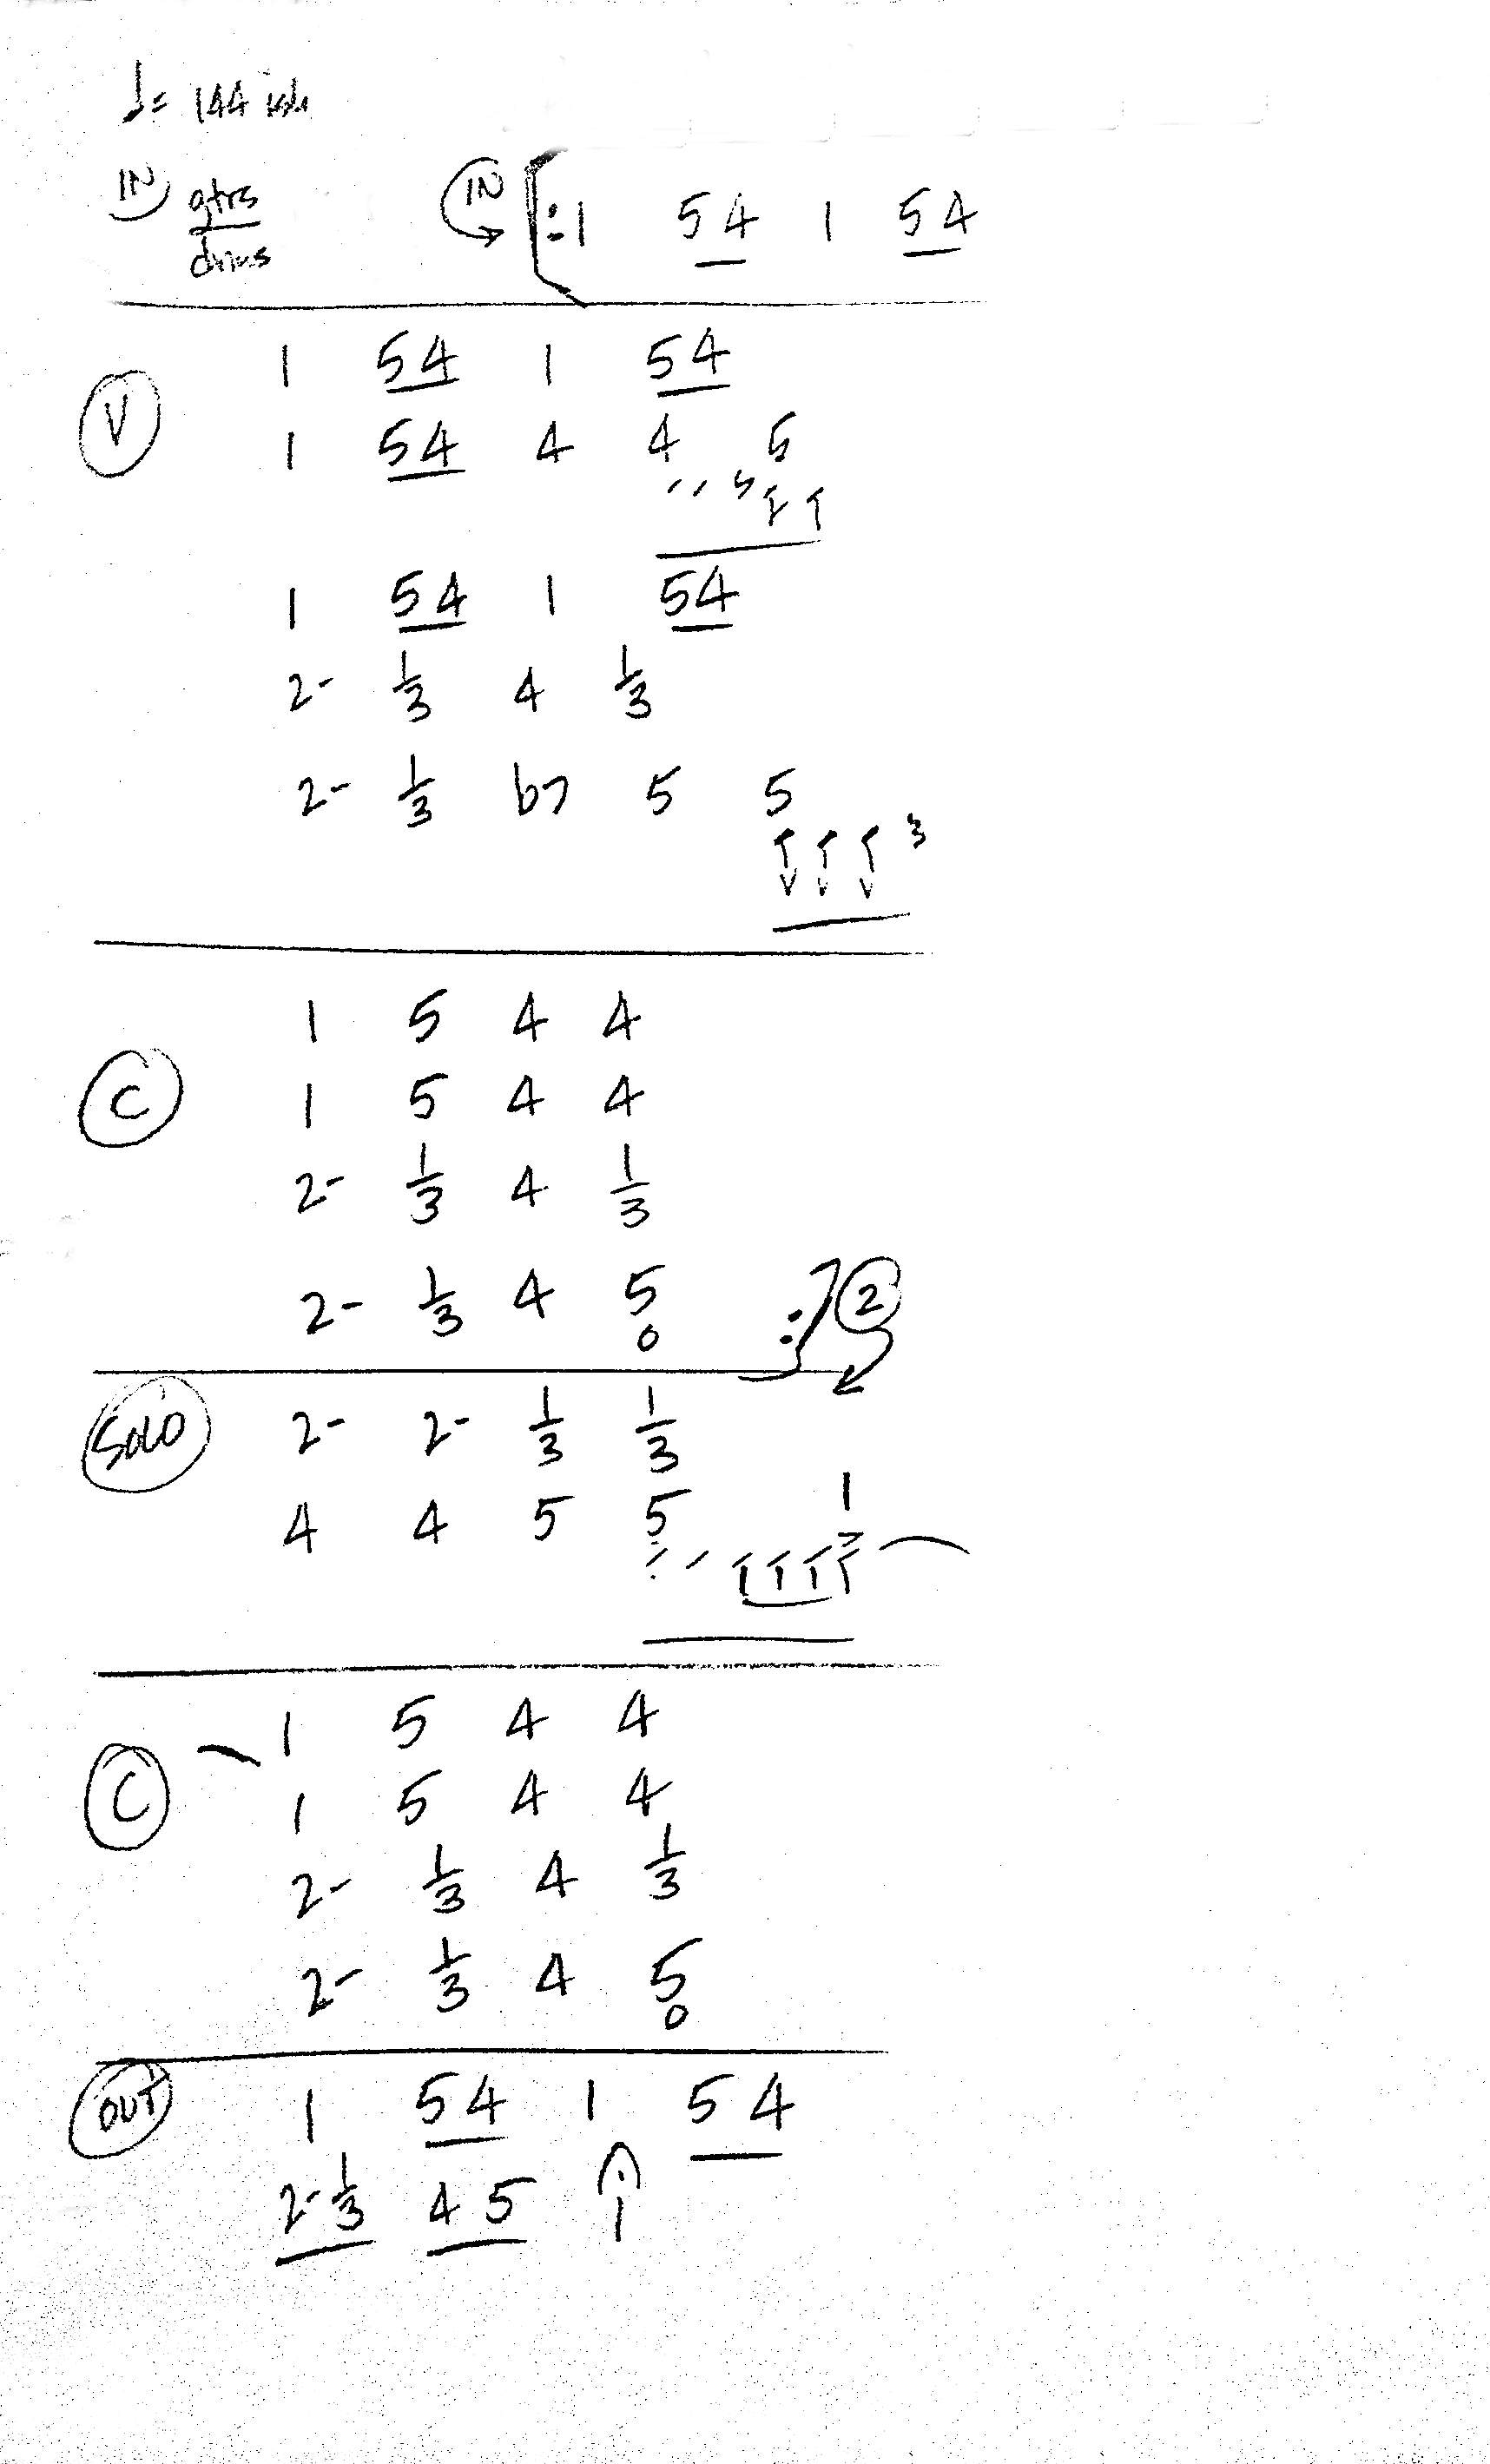 ♩= 144
IN gtrs IN [: 1 54 1 54
drums
V 1 54 1 54
1 54 4 4 5
1 54 1 54
2- 1/3 4 1/3
2- 1/3 b7 5 5
3
C 1 5 4 4
1 5 4 4
2- 1/3 4 1/3
2- 1/3 4 5 :] 2
SOLO 2- 2- 1/3 1/3
4 4 5 5 1
C 1 5 4 4
1 5 4 4
2- 1/3 4 1/3
2- 1/3 4 5
OUT 1 54 1 54
2- 1/3 45 1